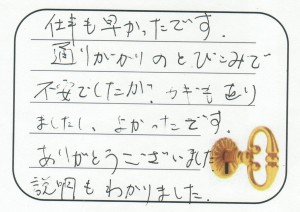 仕事も早かったです.
通りがかりのとびこみで
不安でしたが、カギも直り
ましたし、よかったです。
ありがとうございました
説明もわかりました.